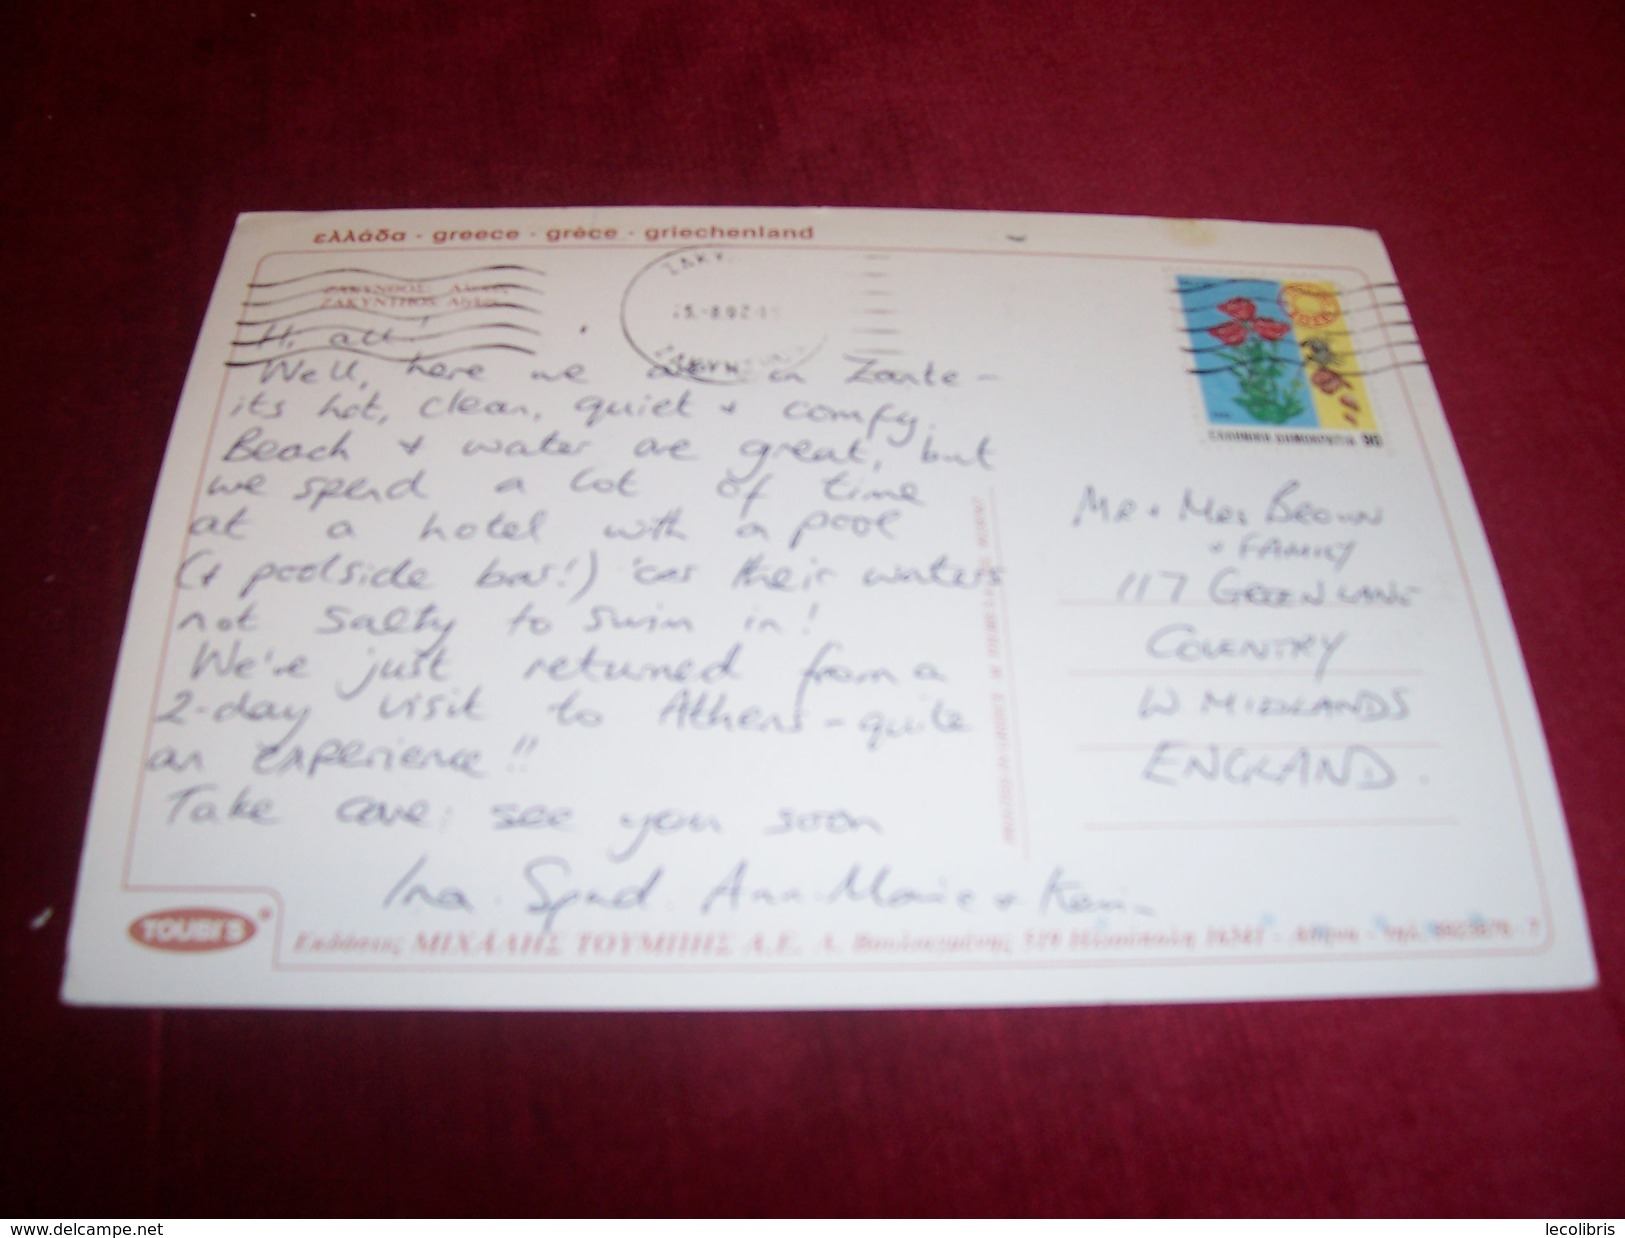 ελλάδα - greece - grèce - griechenland
ΖΑΚΥΝΘΟΣ:
ZAKYNTHOS
ΖΑΚΥ
-8.92
Hi all!
Well, here we are in Zante -
its hot, clean, quiet + comfy.
Beach + water are great, but
we spend a lot of time
at a hotel with a pool
(+ poolside bar!) 'cos their waters
not salty to swim in!
We're just returned from a
2-day visit to Athens - quite
an experience!!
Take care, see you soon
Ina. Spud. Ann-Marie + Kevin
ΕΛΛΗΝΙΚΗ ΔΗΜΟΚΡΑΤΙΑ 90
MR + MRS BROWN
+ FAMILY
117 GREEN LANE
COVENTRY
W MIDLANDS
ENGLAND.
TOUBI'S
Εκδόσεις ΜΙΧΑΛΗΣ ΤΟΥΜΠΗΣ Α.Ε. Λ. Βουλιαγμένης 519 Ηλιούπολη 16341 - Αθήνα - τηλ. 9923876 - 7
www.delcampe.net
lecolibris